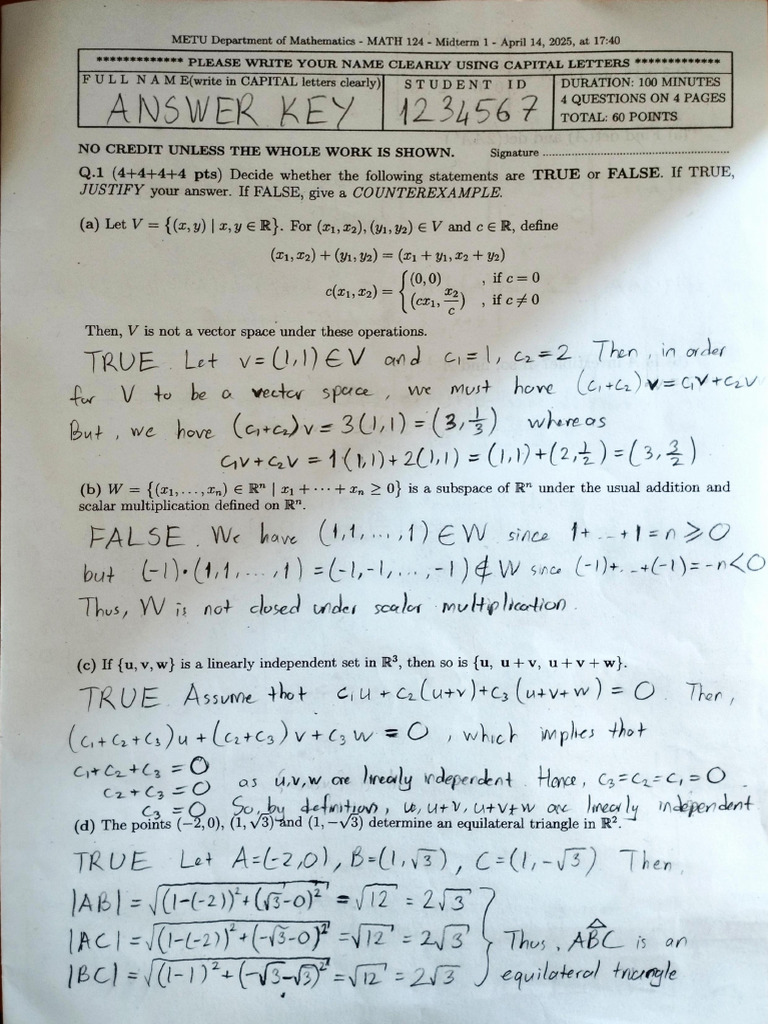 METU Department of Mathematics - MATH 124 - Midterm 1 - April 14, 2025, at 17:40
************* PLEASE WRITE YOUR NAME CLEARLY USING CAPITAL LETTERS *************
FULL NAME(write in CAPITAL letters clearly) STUDENT ID DURATION: 100 MINUTES
ANSWER KEY 1234567 4 QUESTIONS ON 4 PAGES
TOTAL: 60 POINTS
NO CREDIT UNLESS THE WHOLE WORK IS SHOWN. Signature ................................................
Q.1 (4+4+4+4 pts) Decide whether the following statements are TRUE or FALSE. If TRUE,
JUSTIFY your answer. If FALSE, give a COUNTEREXAMPLE.
(a) Let V = {(x, y) | x, y ∈ ℝ}. For (x₁, x₂), (y₁, y₂) ∈ V and c ∈ ℝ, define
(x₁, x₂) + (y₁, y₂) = (x₁ + y₁, x₂ + y₂)
c(x₁, x₂) = { (0, 0) , if c = 0
(cx₁, x₂/c) , if c ≠ 0
Then, V is not a vector space under these operations.
TRUE. Let v=(1,1) ∈ V and c₁=1, c₂=2 Then, in order
for V to be a vector space, we must have (c₁+c₂)v=c₁v+c₂v
But, we have (c₁+c₂)v = 3(1,1) = (3, 1/3) whereas
c₁v+c₂v = 1(1,1)+2(1,1) = (1,1)+(2, 1/2) = (3, 3/2)
(b) W = {(x₁, . . . , xₙ) ∈ ℝⁿ | x₁ + · · · + xₙ ≥ 0} is a subspace of ℝⁿ under the usual addition and
scalar multiplication defined on ℝⁿ.
FALSE. We have (1,1,...,1) ∈ W since 1+...+1 = n ≥ 0
but (-1)·(1,1,...,1) = (-1,-1,...,-1) ∉ W since (-1)+...+(-1) = -n < 0
Thus, W is not closed under scalar multiplication.
(c) If {u, v, w} is a linearly independent set in ℝ³, then so is {u, u + v, u + v + w}.
TRUE. Assume that c₁u + c₂(u+v) + c₃(u+v+w) = 0. Then,
(c₁+c₂+c₃)u + (c₂+c₃)v + c₃w = 0, which implies that
c₁+c₂+c₃ = 0
c₂+c₃ = 0 as u,v,w are linearly independent. Hence, c₃=c₂=c₁=0.
c₃ = 0 So, by definition, u, u+v, u+v+w are linearly independent
(d) The points (−2, 0), (1, √3) and (1, −√3) determine an equilateral triangle in ℝ².
TRUE Let A=(-2,0), B=(1,√3), C=(1,-√3). Then,
|AB| = √((1-(-2))²+(√3-0)²) = √12 = 2√3
|AC| = √((1-(-2))²+(-√3-0)²) = √12 = 2√3 } Thus, ABC is an
|BC| = √((1-1)²+(-√3-√3)²) = √12 = 2√3 equilateral triangle